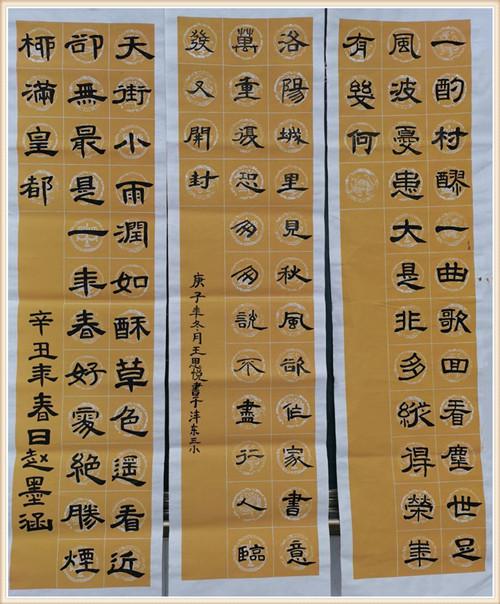 一酌村醪一曲歌回看塵世足
風波憂患大是非多縱得榮華
有幾何
洛陽城里見秋風欲作家書意
萬重復恐匆匆說不盡行人臨
發又開封
庚子年冬月王思悅書于沣东三小
天街小雨潤如酥草色遙看近
卻無最是一年春好處絕勝煙
柳滿皇都
辛丑年春日趙墨涵